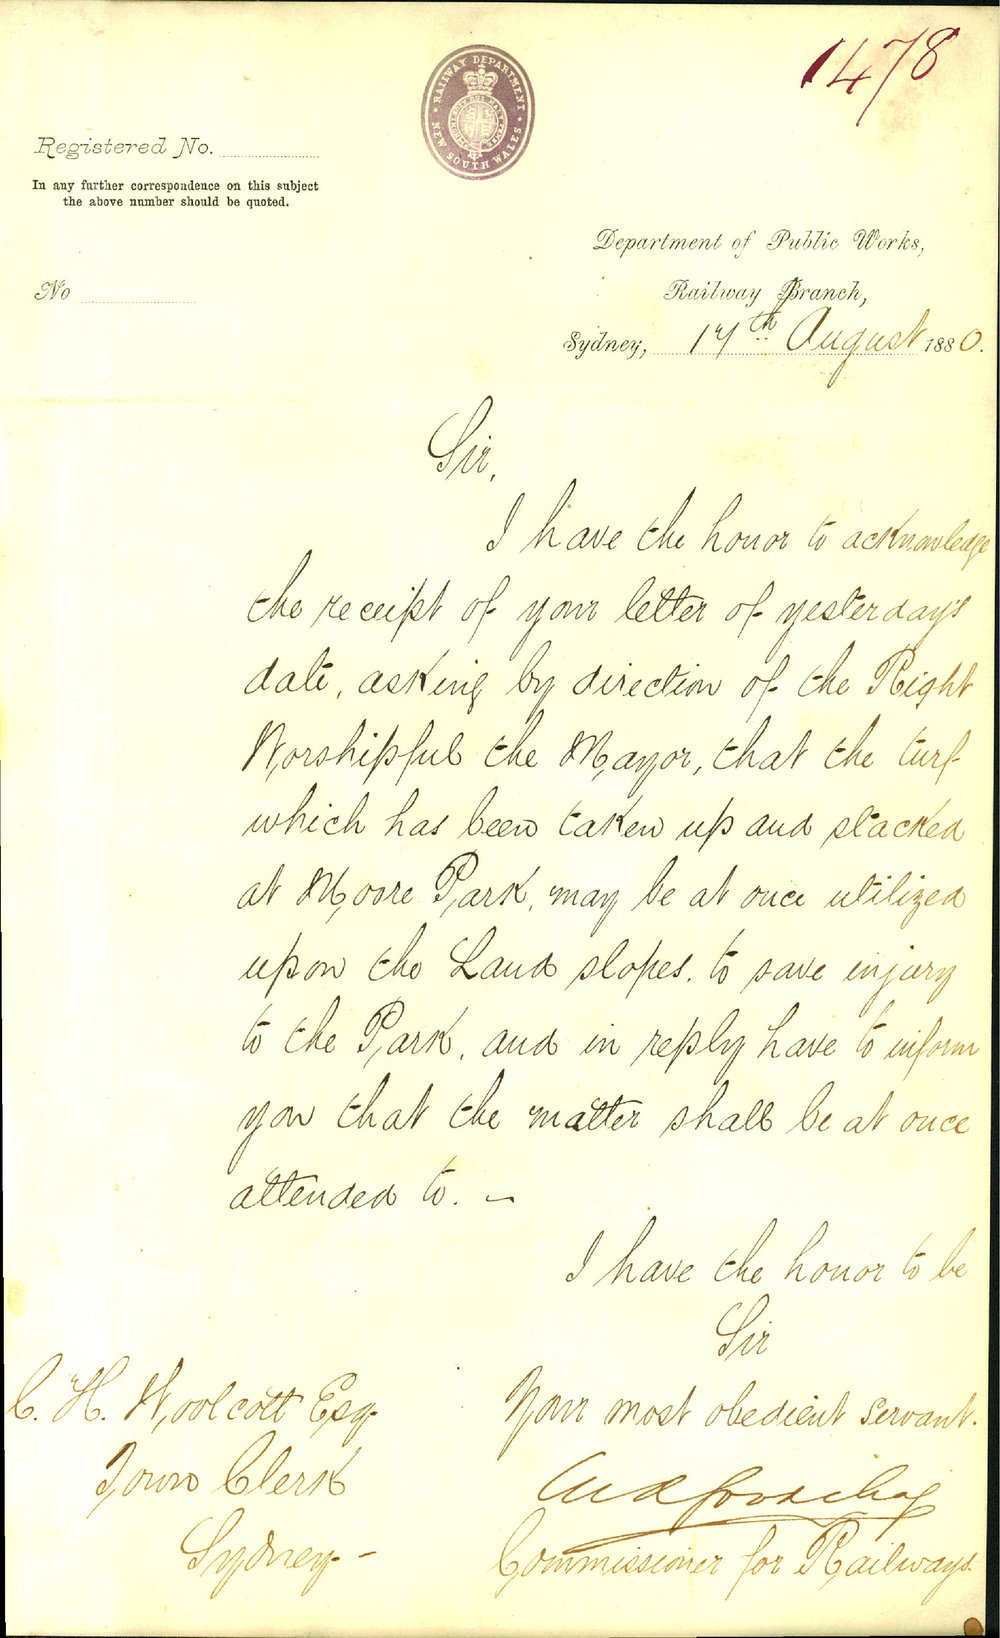 1478
RAILWAY DEPARTMENT
NEW SOUTH WALES
Registered No.
In any further correspondence on this subject
the above number should be quoted.
Department of Public Works,
No
Railway Branch,
Sydney, 17th August 1880.
Sir,
I have the honor to acknowledge
the receipt of your letter of yesterday's
date, asking by direction of the Right
Worshipful the Mayor, that the turf
which has been taken up and stacked
at Moore Park, may be at once utilized
upon the Land slopes, to save injury
to the Park, and in reply have to inform
you that the matter shall be at once
attended to. —
I have the honor to be
Sir
Your most obedient servant.
C. H. Woolcott Esq
Town Clerk
Sydney -
Commissioner for Railways